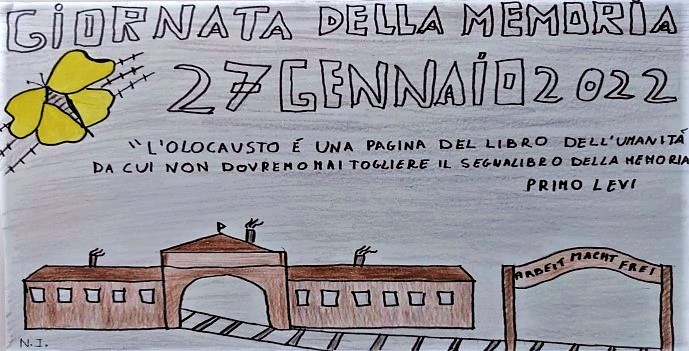 GIORNATA DELLA MEMORIA
27 GENNAIO 2022
"L'OLOCAUSTO É UNA PAGINA DEL LIBRO DELL'UMANITÀ
DA CUI NON DOVREMO MAI TOGLIERE IL SEGNALIBRO DELLA MEMORIA
PRIMO LEVI
ARBEIT MACHT FREI
N.I.